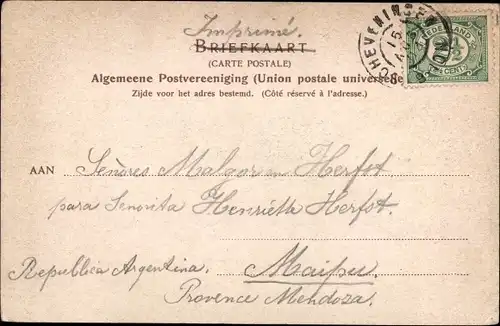 Imprimé.
BRIEFKAART
(CARTE POSTALE)
Algemeene Postvereeniging (Union postale universelle
Zijde voor het adres bestemd. (Côté réservé à l'adresse.)
SCHEVENINGEN
NEDERLAND
2½
CENT
AAN Señores Malgor en Herfst
para Senorita Henrietta Herfst.
Republica Argentina. Maipu.
Provence Mendoza.